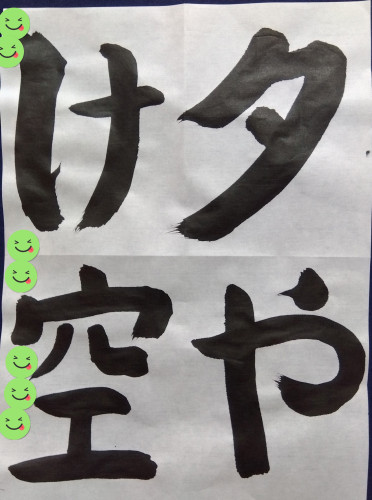 夕や
け空